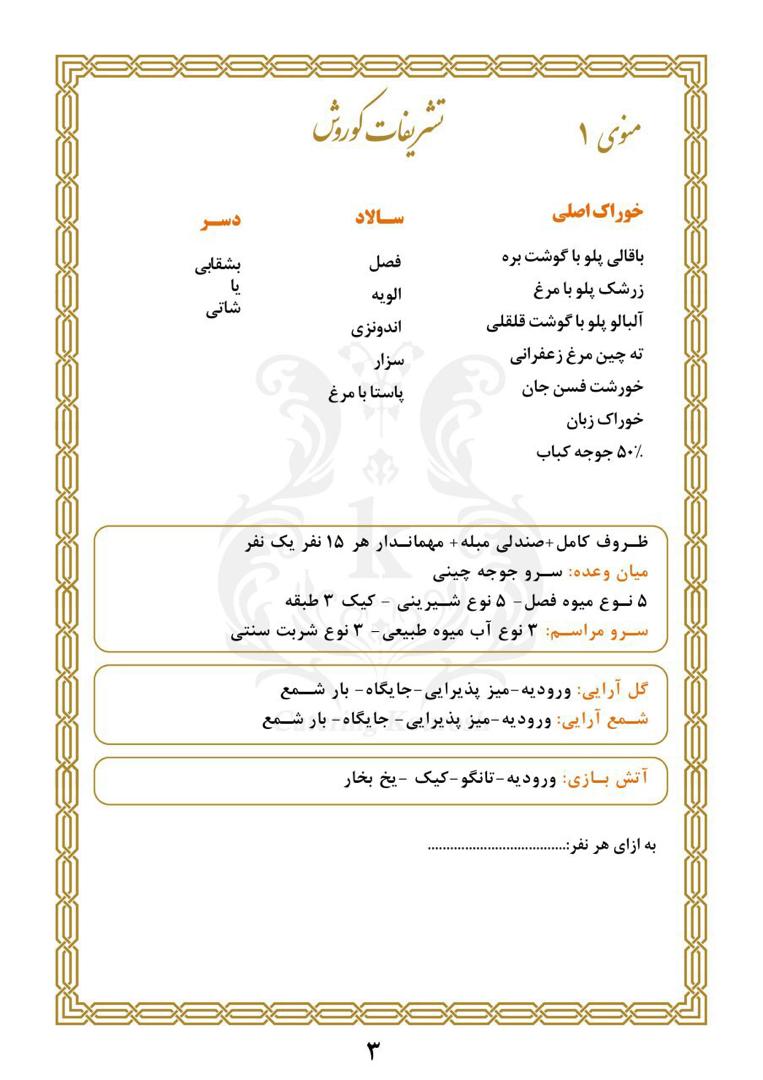 منوی ۱
تشریفات کوروش
خوراک اصلی
باقالی پلو با گوشت بره
زرشک پلو با مرغ
آلبالو پلو با گوشت قلقلی
ته چین مرغ زعفرانی
خورشت فسن جان
خوراک زبان
۵۰٪ جوجه کباب
ســالاد
فصل
الویه
اندونزی
سزار
پاستا با مرغ
دســر
بشقابی
یا
شاتی
ظــروف کامل+صندلی مبله+ مهمانــدار هر ۱۵ نفر یک نفر
میان وعده: ســرو جوجه چینی
۵ نــوع میوه فصل- ۵ نوع شــیرینی - کیک ۳ طبقه
ســرو مراســم: ۳ نوع آب میوه طبیعی- ۳ نوع شربت سنتی
گل آرایی: ورودیه-میز پذیرایی-جایگاه- بار شــمع
شــمع آرایی: ورودیه-میز پذیرایی- جایگاه- بار شــمع
آتش بــازی: ورودیه-تانگو-کیک -یخ بخار
به ازای هر نفر:.....................................
k
۳